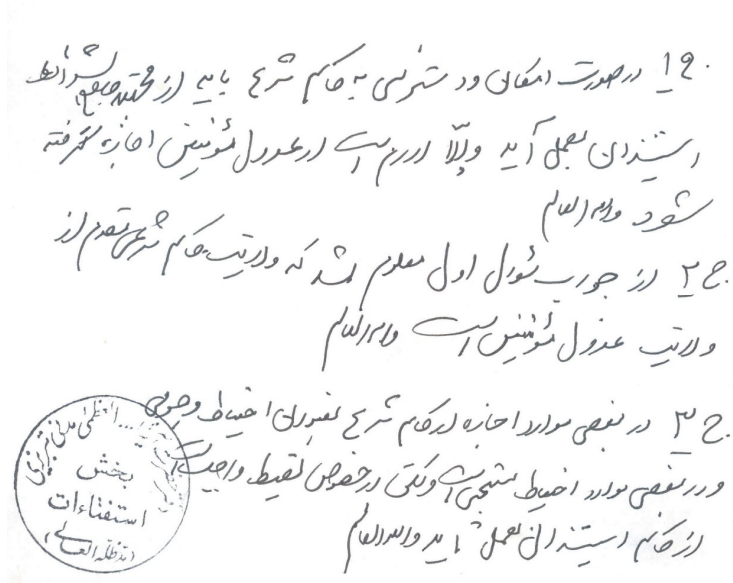 ج ۱ در صورت امکان و دسترسی به حاکم شرع باید از مجتهد جامع الشرائط
استیذان بعمل آید والّا لازم است از عدول مؤمنین اجازه گرفته
شود والله العالم
ج ۲ از جواب سئوال اول معلوم شد که ولایت حاکم شرعی مقدم از
ولایت عدول مؤمنین است والله العالم
ج ۳ در بعضی موارد اجازه از حاکم شرع بعنوان احتیاط وجوبی
و در بعضی موارد احتیاط مستحبی است ولکن در خصوص لقیط واجب است
از حاکم استیذان بعمل آید والله العالم
العظمی مدنی تبریزی
بخش
استفتاءات
(مدظله العالی)